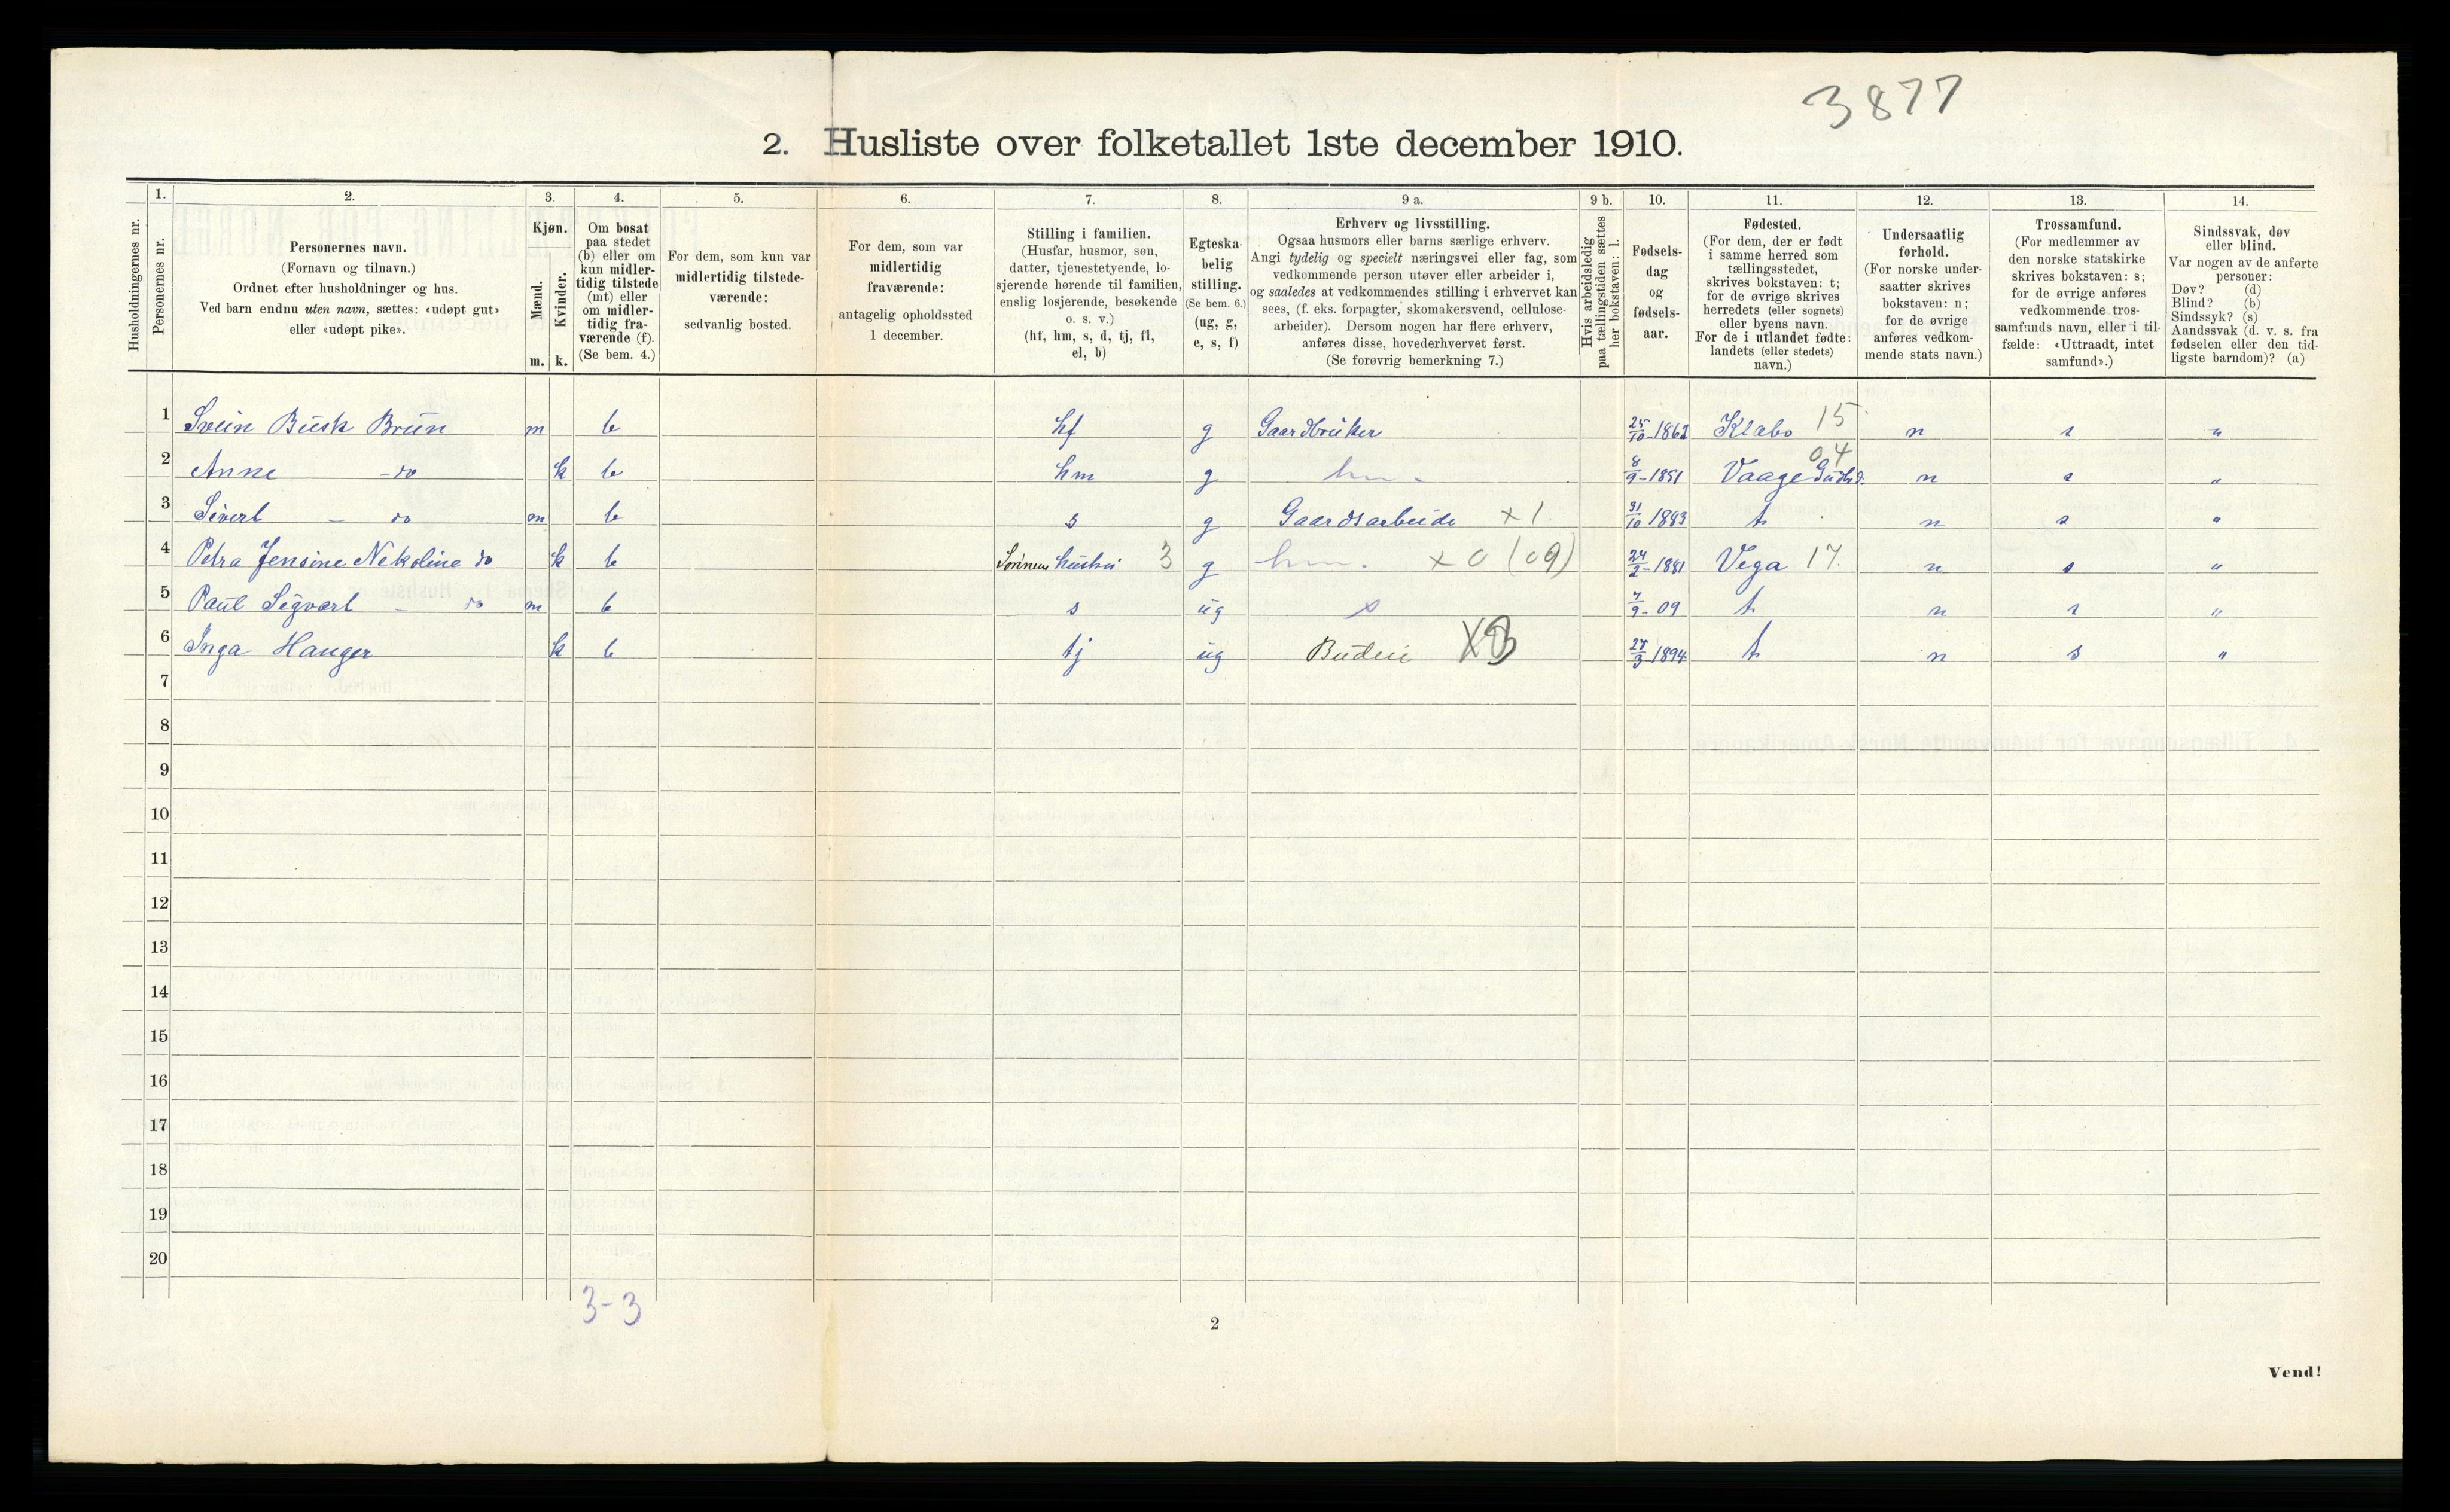 3877
2. Husliste over folketallet 1ste december 1910.
Husholdningernes nr.
1.
Personernes nr.
2.
Personernes navn.
(Fornavn og tilnavn.)
Ordnet efter husholdninger og hus.
Ved barn endnu uten navn, sættes: «udøpt gut»
eller «udøpt pike».
3.
Kjøn.
Mænd.
m.
Kvinder.
k.
4.
Om bosat
paa stedet
(b) eller om
kun midler-
tidig tilstede
(mt) eller
om midler-
tidig fra-
værende (f).
(Se bem. 4.)
5.
For dem, som kun var
midlertidig tilstede-
værende:
sedvanlig bosted.
6.
For dem, som var
midlertidig
fraværende:
antagelig opholdssted
1 december.
7.
Stilling i familien.
(Husfar, husmor, søn,
datter, tjenestetyende, lo-
sjerende hørende til familien,
enslig losjerende, besøkende
o. s. v.)
(hf, hm, s, d, tj, fl,
el, b)
8.
Egteska-
belig
stilling.
(Se bem. 6.)
(ug, g,
e, s, f)
9 a.
Erhverv og livsstilling.
Ogsaa husmors eller barns særlige erhverv.
Angi tydelig og specielt næringsvei eller fag, som
vedkommende person utøver eller arbeider i,
og saaledes at vedkommendes stilling i erhvervet kan
sees, (f. eks. forpagter, skomakersvend, cellulose-
arbeider). Dersom nogen har flere erhverv,
anføres disse, hovederhvervet først.
(Se forøvrig bemerkning 7.)
9 b.
Hvis arbeidsledig
paa tællingstiden sættes
her bokstaven: l.
10.
Fødsels-
dag
og
fødsels-
aar.
11.
Fødested.
(For dem, der er født
i samme herred som
tællingsstedet,
skrives bokstaven: t;
for de øvrige skrives
herredets (eller sognets)
eller byens navn.
For de i utlandet fødte:
landets (eller stedets)
navn.)
12.
Undersaatlig
forhold.
(For norske under-
saatter skrives
bokstaven: n;
for de øvrige
anføres vedkom-
mende stats navn.)
13.
Trossamfund.
(For medlemmer av
den norske statskirke
skrives bokstaven: s;
for de øvrige anføres
vedkommende tros-
samfunds navn, eller i til-
fælde: «Uttraadt, intet
samfund».)
14.
Sindssvak, døv
eller blind.
Var nogen av de anførte
personer:
Døv? (d)
Blind? (b)
Sindssyk? (s)
Aandssvak (d. v. s. fra
fødselen eller den tid-
ligste barndom)? (a)
1 Svein Busk Brun m b hf g Gaardbruker 25/10-1862 Klæbo 15 n s "
2 Anne - do k b hm g hm - 8/9-1851 Vaage Gudbd. 04 n s "
3 Sivert - do m b s g Gaardsarbeide x 1 31/10 1883 t n s "
4 Petra Jensine Nekoline do k b Sønnens hustru 3 g hm. x 0 (09) 24/2-1881 Vega 17 n s "
5 Paul Sigvart - do m b s ug s 7/9-09 t n s "
6 Inga Hauger k b tj ug Budeie X3 27/3 1894 t n s "
7
8
9
10
11
12
13
14
15
16
17
18
19
20
3-3
2
Vend!